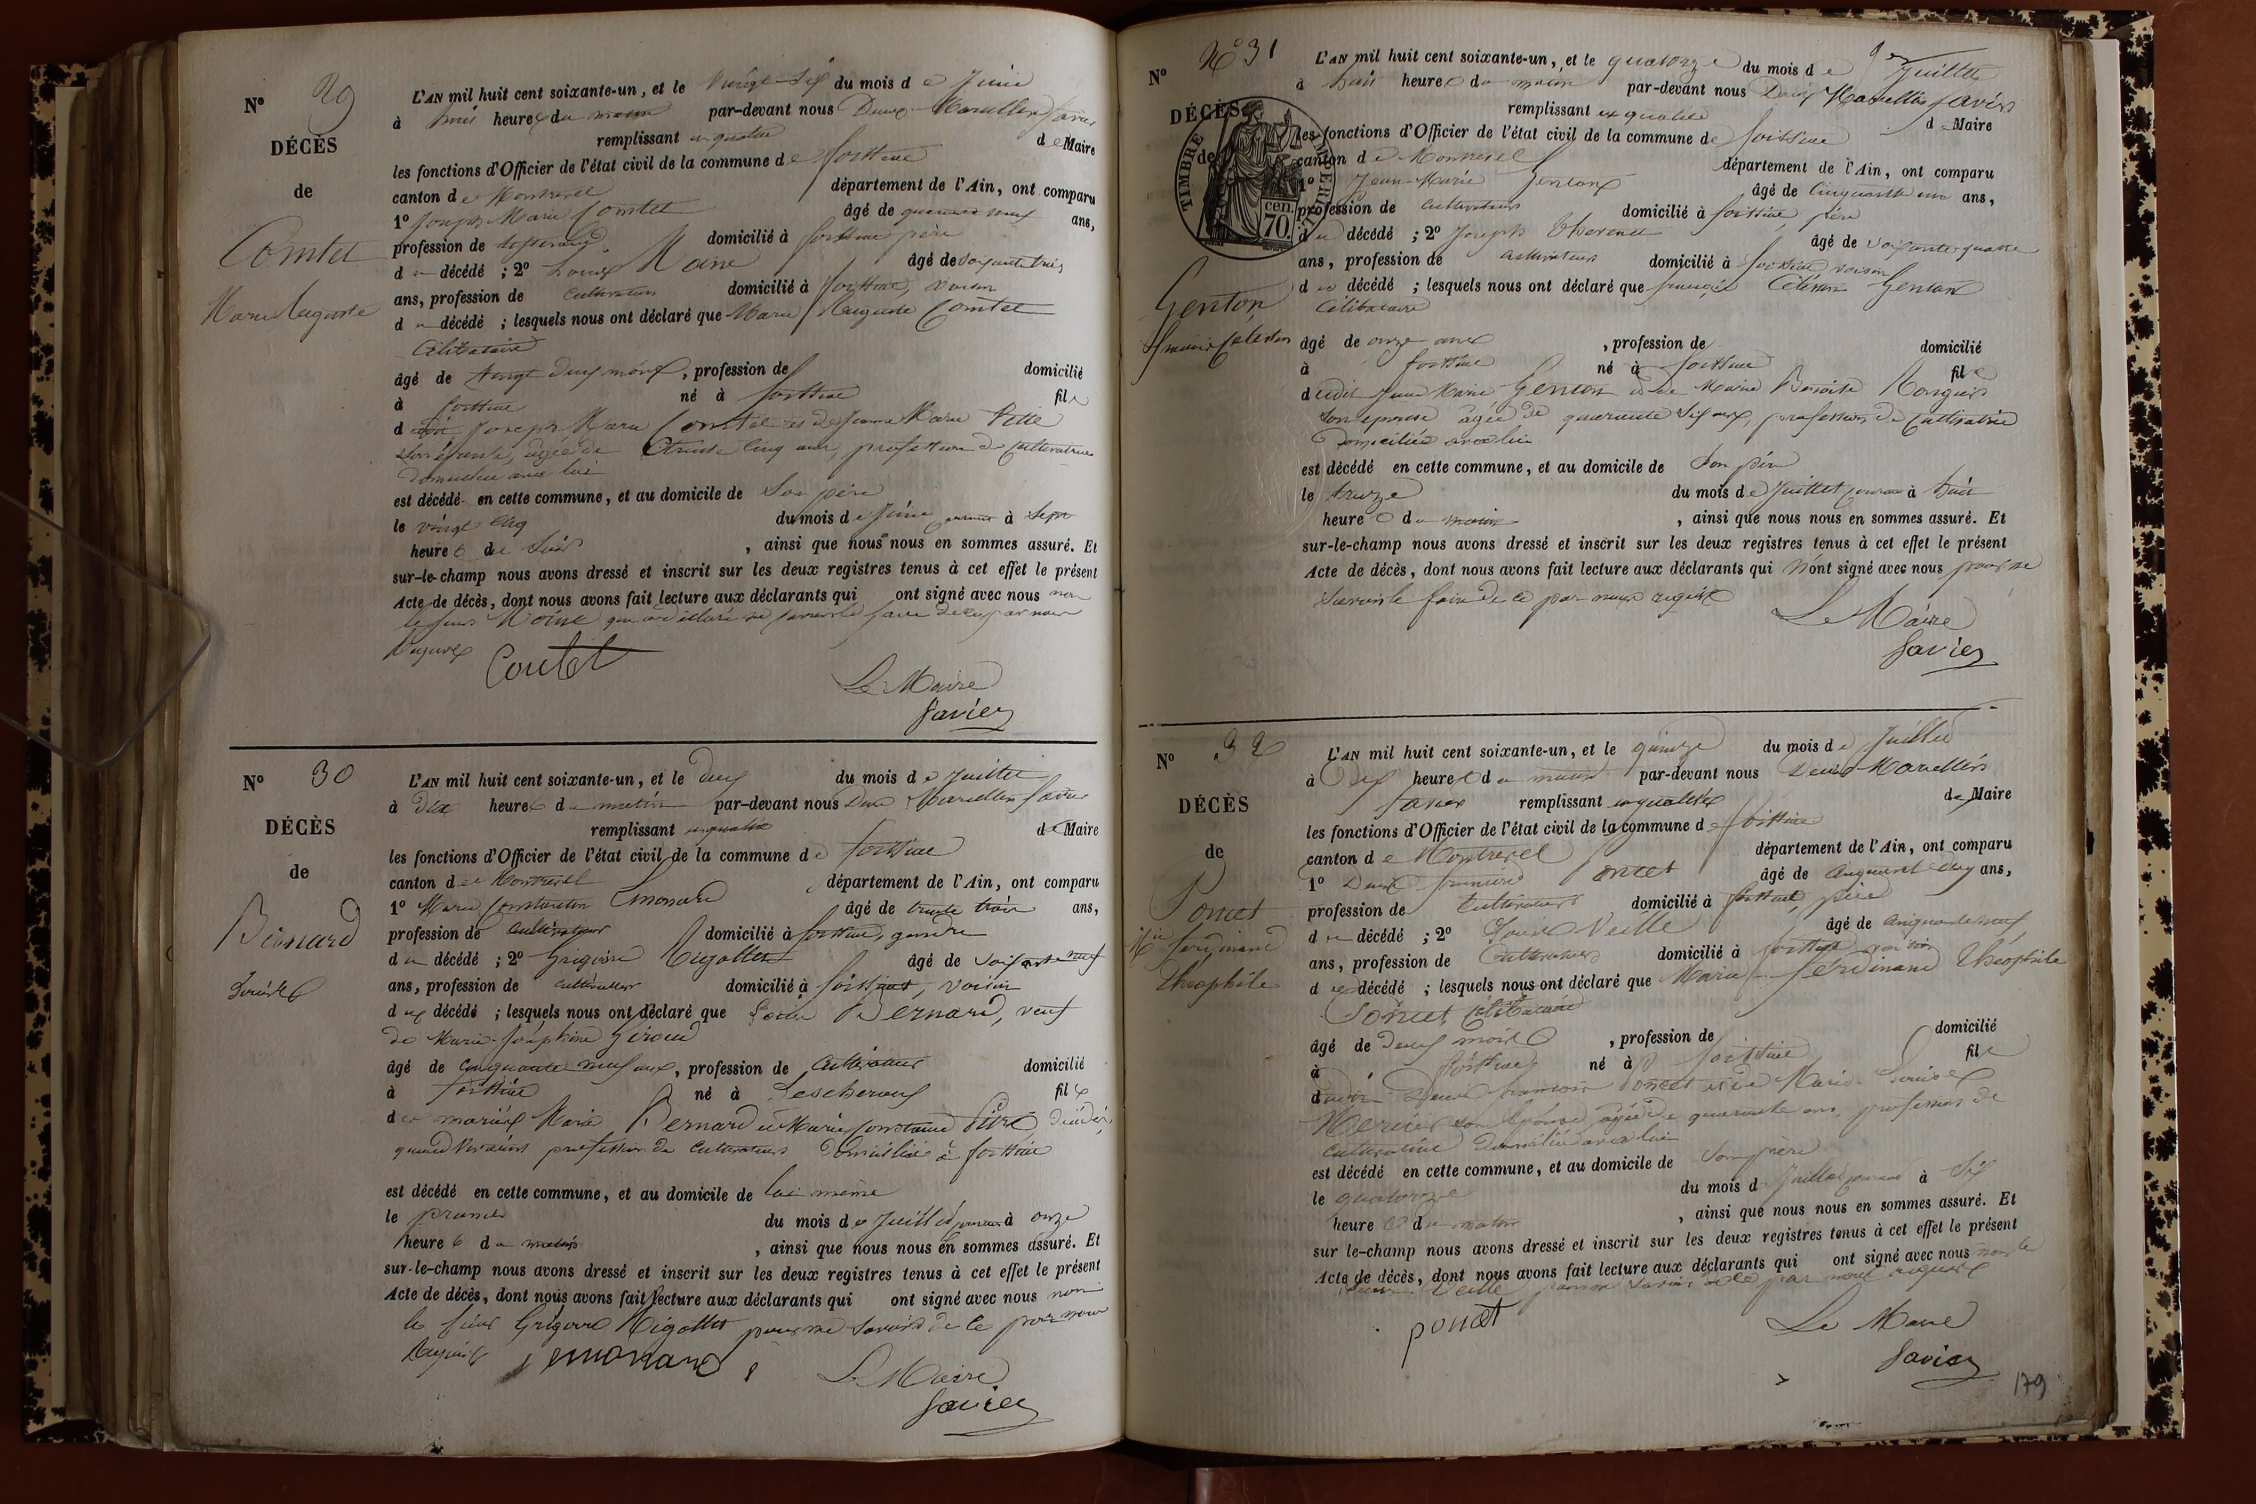 N° 29
DÉCÈS
de
Comtet
Marie Auguste
L'AN mil huit cent soixante-un, et le vingt-six du mois de Juin
à trois heures du matin par-devant nous Denis Marcellin Favier
remplissant en qualité de Maire
les fonctions d'Officier de l'état civil de la commune de foissiat
canton de Montrevel département de l'Ain, ont comparu
1° Joseph Marie Comtet âgé de quarante neuf ans,
profession de domicilié à foissiat père
du décédé ; 2° Louis Moine âgé de soixante trois
ans, profession de cultivateur domicilié à foissiat, voisin
du décédé ; lesquels nous ont déclaré que Marie Auguste Comtet
Célibataire
âgé de vingt deux mois, profession de domicilié
à foissiat né à foissiat fils
d Joseph Marie Comtet et de Jeanne Marie
son épouse, âgée de trente cinq ans, profession de cultivatrice
domiciliée avec lui
est décédé en cette commune, et au domicile de son père
le vingt cinq du mois de Juin courant à sept
heures du soir , ainsi que nous nous en sommes assuré. Et
sur-le-champ nous avons dressé et inscrit sur les deux registres tenus à cet effet le présent
Acte de décès, dont nous avons fait lecture aux déclarants qui ont signé avec nous non
le sieur Moine qui a déclaré ne savoir le faire de ce par nous
requis
Comtet
Le Maire
Favier
N° 30
DÉCÈS
de
Bernard
L'AN mil huit cent soixante-un, et le deux du mois de Juillet
à dix heures du matin par-devant nous Denis Marcellin Favier
remplissant en qualité de Maire
les fonctions d'Officier de l'état civil de la commune de foissiat
canton de Montrevel département de l'Ain, ont comparu
1° Marie Constantin Emonard âgé de trente trois ans,
profession de cultivateur domicilié à foissiat, gendre
du décédé ; 2° Grégoire Rigollet âgé de soixante neuf
ans, profession de cultivateur domicilié à foissiat, voisin
du décédé ; lesquels nous ont déclaré que Bernard, veuf
de Marie Joséphine Giroud
âgé de cinquante neuf ans, profession de cultivateur domicilié
à foissiat né à Lescheroux fils
des mariés Marie Bernard et Marie Constance décédés,
quand vivaient profession de cultivateurs domiciliés à foissiat
est décédé en cette commune, et au domicile de lui même
le premier du mois de Juillet courant à onze
heures du matin , ainsi que nous nous en sommes assuré. Et
sur-le-champ nous avons dressé et inscrit sur les deux registres tenus à cet effet le présent
Acte de décès, dont nous avons fait lecture aux déclarants qui ont signé avec nous non
le sieur Grégoire Rigollet pour ne savoir de ce par nous
requis
emonard
Le Maire
Favier
N° N° 31
DÉCÈS
de
TIMBRE IMPÉRIAL
70 cen.
Genton
françois Célestin
L'AN mil huit cent soixante-un, et le quatorze du mois de Juillet
à huit heures du matin par-devant nous Denis Marcellin Favier
remplissant en qualité de Maire
les fonctions d'Officier de l'état civil de la commune de foissiat
canton de Montrevel département de l'Ain, ont comparu
1° Jean-Marie Genton âgé de cinquante un ans,
profession de cultivateur domicilié à foissiat, père
du décédé ; 2° Joseph Thevenet âgé de soixante quatre
ans, profession de cultivateur domicilié à foissiat voisin
du décédé ; lesquels nous ont déclaré que françois Célestin Genton
Célibataire
âgé de onze ans , profession de domicilié
à foissiat né à foissiat fils
dudit Jean Marie Genton et de Marie Benoite
son épouse âgée de quarante six ans, profession de cultivatrice
domiciliée avec lui
est décédé en cette commune, et au domicile de son père
le treize du mois de Juillet courant à huit
heures du matin , ainsi que nous nous en sommes assuré. Et
sur-le-champ nous avons dressé et inscrit sur les deux registres tenus à cet effet le présent
Acte de décès, dont nous avons fait lecture aux déclarants qui n'ont signé avec nous pour ne
savoir le faire de ce par nous requis
Le Maire
Favier
N° 32
DÉCÈS
de
Poncet
Mie ferdinand
Théophile
L'AN mil huit cent soixante-un, et le quinze du mois de Juillet
à dix heures du matin par-devant nous Denis Marcellin
Favier remplissant en qualité de Maire
les fonctions d'Officier de l'état civil de la commune de foissiat
canton de Montrevel département de l'Ain, ont comparu
1° Denis françois Poncet âgé de cinquante deux ans,
profession de cultivateur domicilié à foissiat, père
du décédé ; 2° Louis Veille âgé de cinquante neuf
ans, profession de cultivateur domicilié à foissiat voisin
du décédé ; lesquels nous ont déclaré que Marie ferdinand Théophile
Poncet Célibataire
âgé de deux mois , profession de domicilié
à foissiat né à foissiat fils
dudit Denis françois Poncet et de Marie Louise
Mercier son épouse âgée de quarante ans, profession de
cultivatrice domiciliée avec lui
est décédé en cette commune, et au domicile de son père
le quatorze du mois de Juillet courant à six
heures du matin , ainsi que nous nous en sommes assuré. Et
sur le-champ nous avons dressé et inscrit sur les deux registres tenus à cet effet le présent
Acte de décès, dont nous avons fait lecture aux déclarants qui ont signé avec nous non le
sieur Veille pour ne savoir de ce par nous requis
poncet
Le Maire
Favier
179